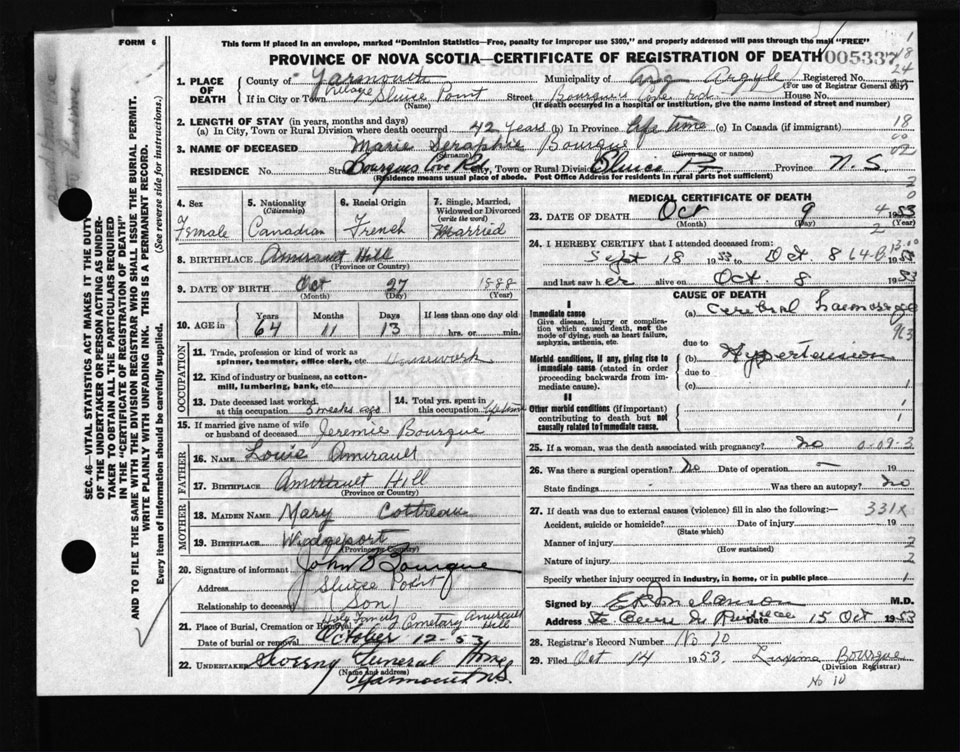 FORM 6
This form if placed in an envelope, marked "Dominion Statistics—Free, penalty for improper use $300," and properly addressed will pass through the mail "FREE"
PROVINCE OF NOVA SCOTIA—CERTIFICATE OF REGISTRATION OF DEATH 005337
1. PLACE OF DEATH
County of Yarmouth Municipality of Argyle Registered No.
(For use of Registrar General only)
If in City or Town Village Sluice Point Street Bourque's Cove Rd. House No.
(Name) (If death occurred in a hospital or institution, give the name instead of street and number)
2. LENGTH OF STAY (in years, months and days)
(a) In City, Town or Rural Division where death occurred 42 years (b) In Province Life Time (c) In Canada (if immigrant)
3. NAME OF DECEASED Marie Seraphie Bourque
(Surname) (Given name or names)
RESIDENCE No. Street Bourques Cove Rd. City, Town or Rural Division Sluice Pt. Province N.S.
(Residence means usual place of abode. Post Office Address for residents in rural parts not sufficient)
4. Sex Female
5. Nationality (Citizenship) Canadian
6. Racial Origin French
7. Single, Married, Widowed or Divorced (write the word) Married
8. BIRTHPLACE Amirault Hill
(Province or Country)
9. DATE OF BIRTH Oct 27 1888
(Month) (Day) (Year)
10. AGE in Years Months Days If less than one day old
64 11 13 hrs. or min.
OCCUPATION
11. Trade, profession or kind of work as spinner, teamster, office clerk, etc. Housework
12. Kind of industry or business, as cotton-mill, lumbering, bank, etc.
13. Date deceased last worked at this occupation 3 weeks ago
14. Total yrs. spent in this occupation Lifetime
15. If married give name of wife or husband of deceased Jeremie Bourque
FATHER
16. NAME Louis Amirault
17. BIRTHPLACE Amirault Hill
(Province or Country)
MOTHER
18. MAIDEN NAME Mary Cottreau
19. BIRTHPLACE Wedgeport
(Province or Country)
20. Signature of informant John B Bourque
Address Sluice Point
Relationship to deceased (Son)
21. Place of Burial, Cremation or Removal Holy Family Cemetary Amirault Hill
Date of burial or removal October 12-53
22. UNDERTAKER Sweeny Funeral Home
(Name and address)
Yarmouth N.S.
MEDICAL CERTIFICATE OF DEATH
23. DATE OF DEATH Oct 9 1953
(Month) (Day) (Year)
24. I HEREBY CERTIFY that I attended deceased from:
Sept 18 1953 to Oct 8 1953
and last saw her alive on Oct 8 1953
CAUSE OF DEATH
I
Immediate cause
Give disease, injury or complication which caused death, not the mode of dying, such as heart failure, asphyxia, asthenia, etc.
(a) Cerebral haemorrage
due to
Morbid conditions, if any, giving rise to immediate cause (stated in order proceeding backwards from immediate cause).
(b) Hypertension
due to
(c)
II
Other morbid conditions (if important) contributing to death but not causally related to immediate cause.
25. If a woman, was the death associated with pregnancy? no 0-09-3
26. Was there a surgical operation? No Date of operation — 19
State findings - Was there an autopsy? No
27. If death was due to external causes (violence) fill in also the following:— 331X
Accident, suicide or homicide? Date of injury 19
(State which)
Manner of injury
(How sustained)
Nature of injury
Specify whether injury occurred in industry, in home, or in public place
Signed by M.D.
Address Date 15 Oct 1953
28. Registrar's Record Number No 10
29. Filed Oct 14 1953. Bourque
(Division Registrar)
No 10
SEC. 46—VITAL STATISTICS ACT MAKES IT THE DUTY
OF THE UNDERTAKER OR PERSON ACTING AS UNDER-
TAKER TO OBTAIN ALL THE PARTICULARS REQUIRED
IN THE "CERTIFICATE OF REGISTRATION OF DEATH"
AND TO FILE THE SAME WITH THE DIVISION REGISTRAR WHO SHALL ISSUE THE BURIAL PERMIT.
WRITE PLAINLY WITH UNFADING INK. THIS IS A PERMANENT RECORD.
Every item of information should be carefully supplied. (See reverse side for instructions.)